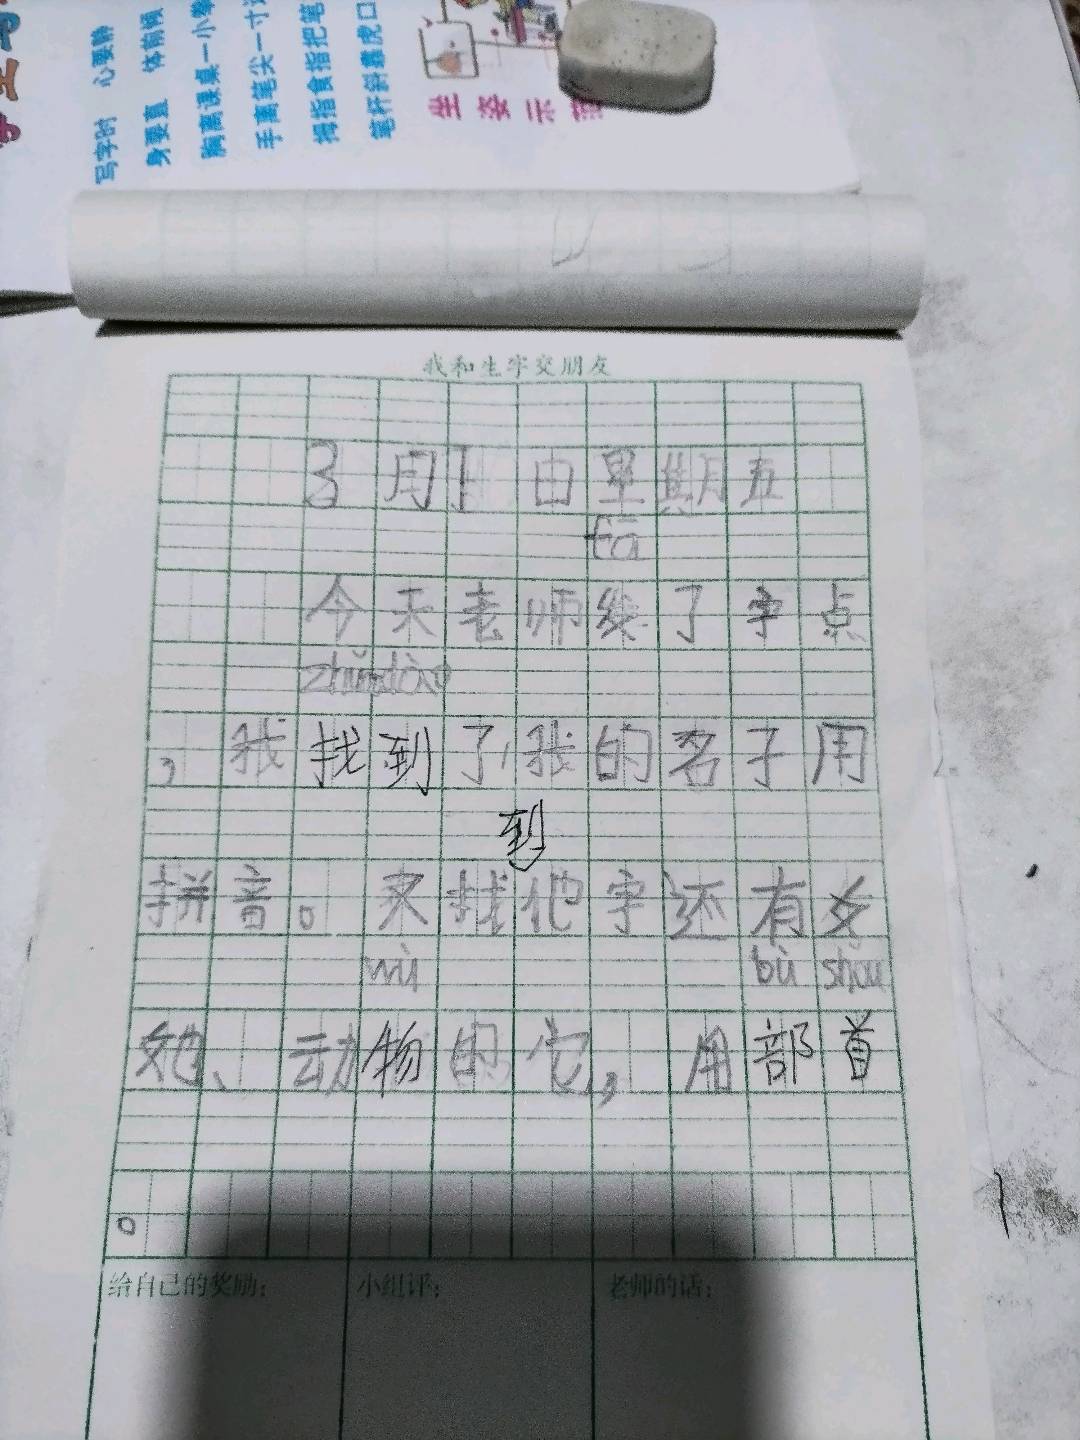 写字时 心要静
身要直 体前倾
胸离课桌一小拳
手离笔尖一寸远
拇指食指把笔
笔杆斜靠虎口
坐姿示范
我和生字交朋友
3月1日星期五
fā
今天老师发了字点
zhǎo dào
，我找到了，我的名子用
到
拼音。来找他字还有
wù bù shǒu
她、动物的它，用部首
。
给自己的奖励： 小组评： 老师的话：